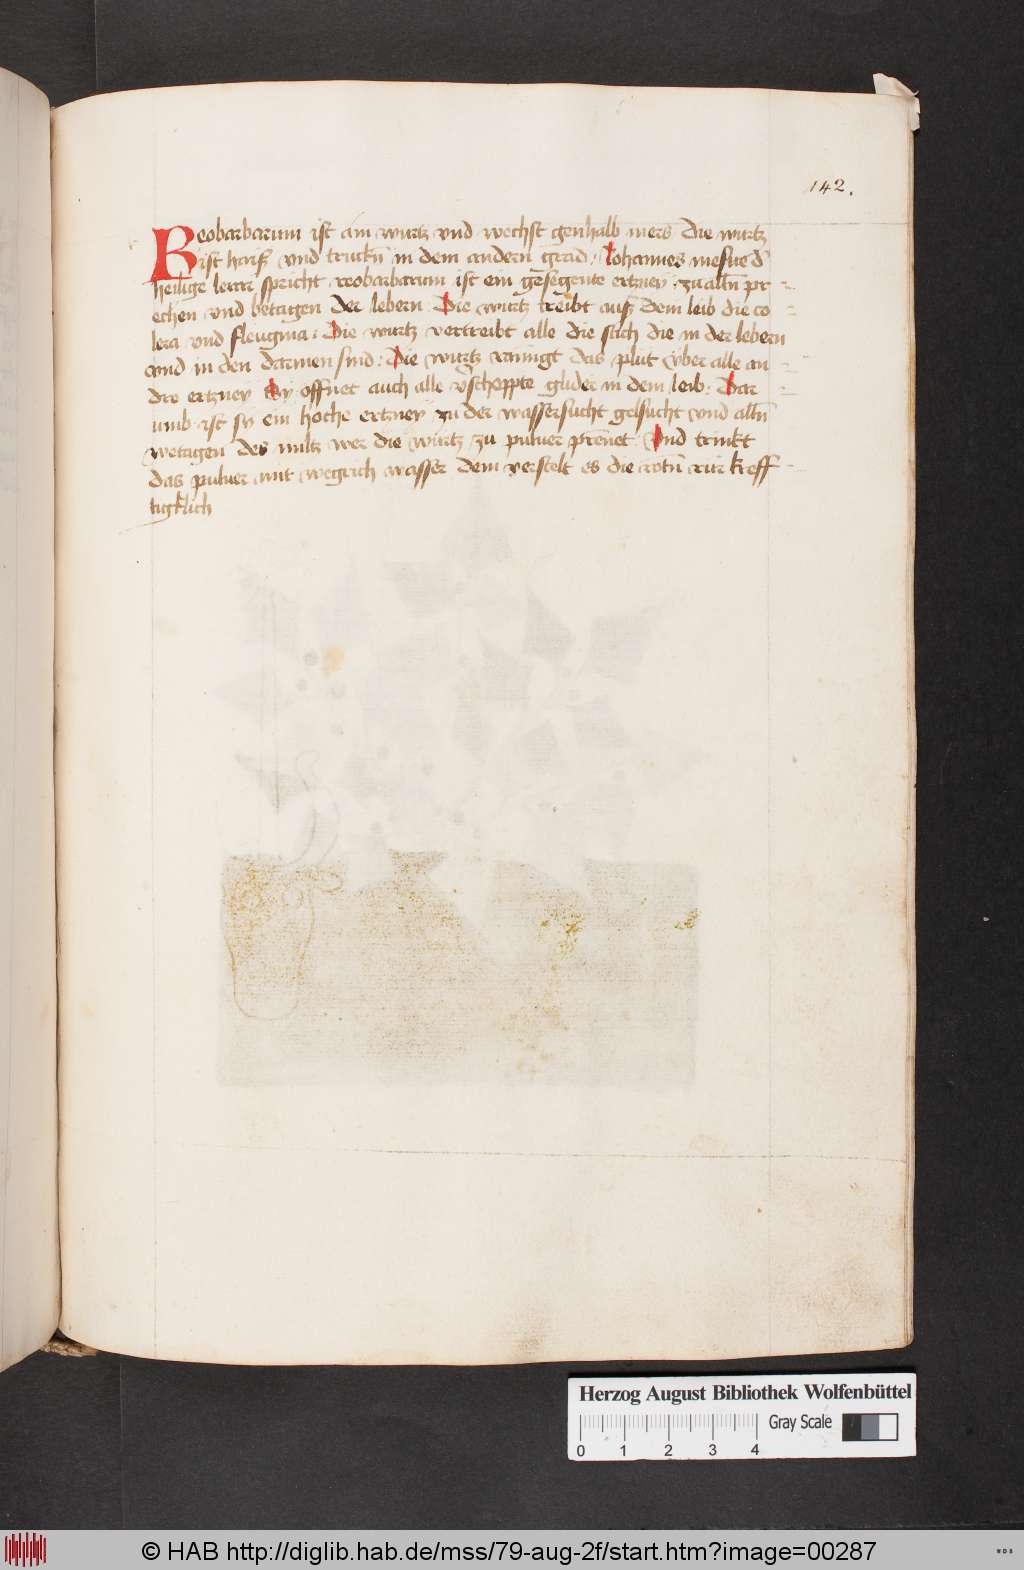 142.
Reobarbarum ist ain wurtz vnd wechst genhalb mers Die wurtz
ist haiß vnd truckn̄ in dem andern grad: Johannes mesue d̄
heilige lerer spricht reobarbarum ist ein gesegente ertzney zu alln̄ pr
echen vnd betagen Der lebern Die wurtz treibt auß dem leib die co
lera vnd fleugma: Die wurtz vertreibt alle die sach die in der lebern
vnd in den darmen sind: Die wurtz rainigt das plut vber alle an
dre ertzney Sy offnet auch alle vscheppte glider in dem leib: Dar
umb ist sy ein hoche ertzney zu der wassersucht gelsucht vnd alln̄
wetagen des miltz wer die wurtz zu puluer prennet Vnd trinkt
das puluer mit wegrich wasser dem verstelt es die rotn̄ rur kreff
tigklich
Herzog August Bibliothek Wolfenbüttel
Gray Scale
0 1 2 3 4
© HAB http://diglib.hab.de/mss/79-aug-2f/start.htm?image=00287